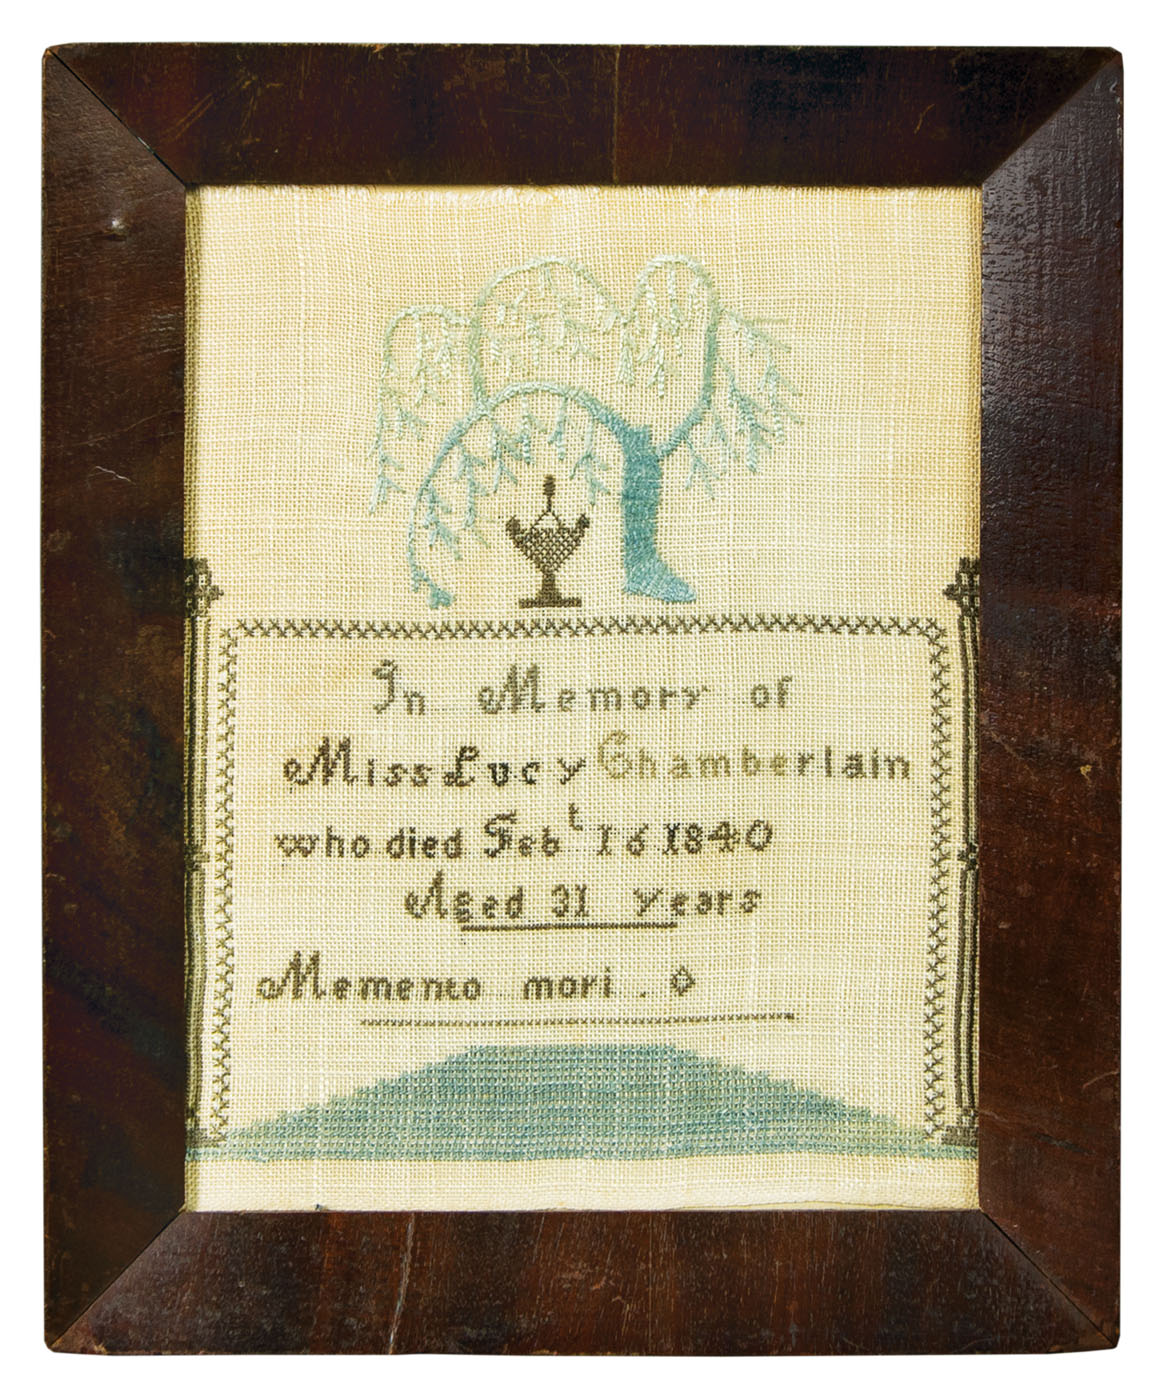 In Memory of
Miss Lucy Chamberlain
who died Feb t 16 1840
Aged 31 years
Memento mori . ◇